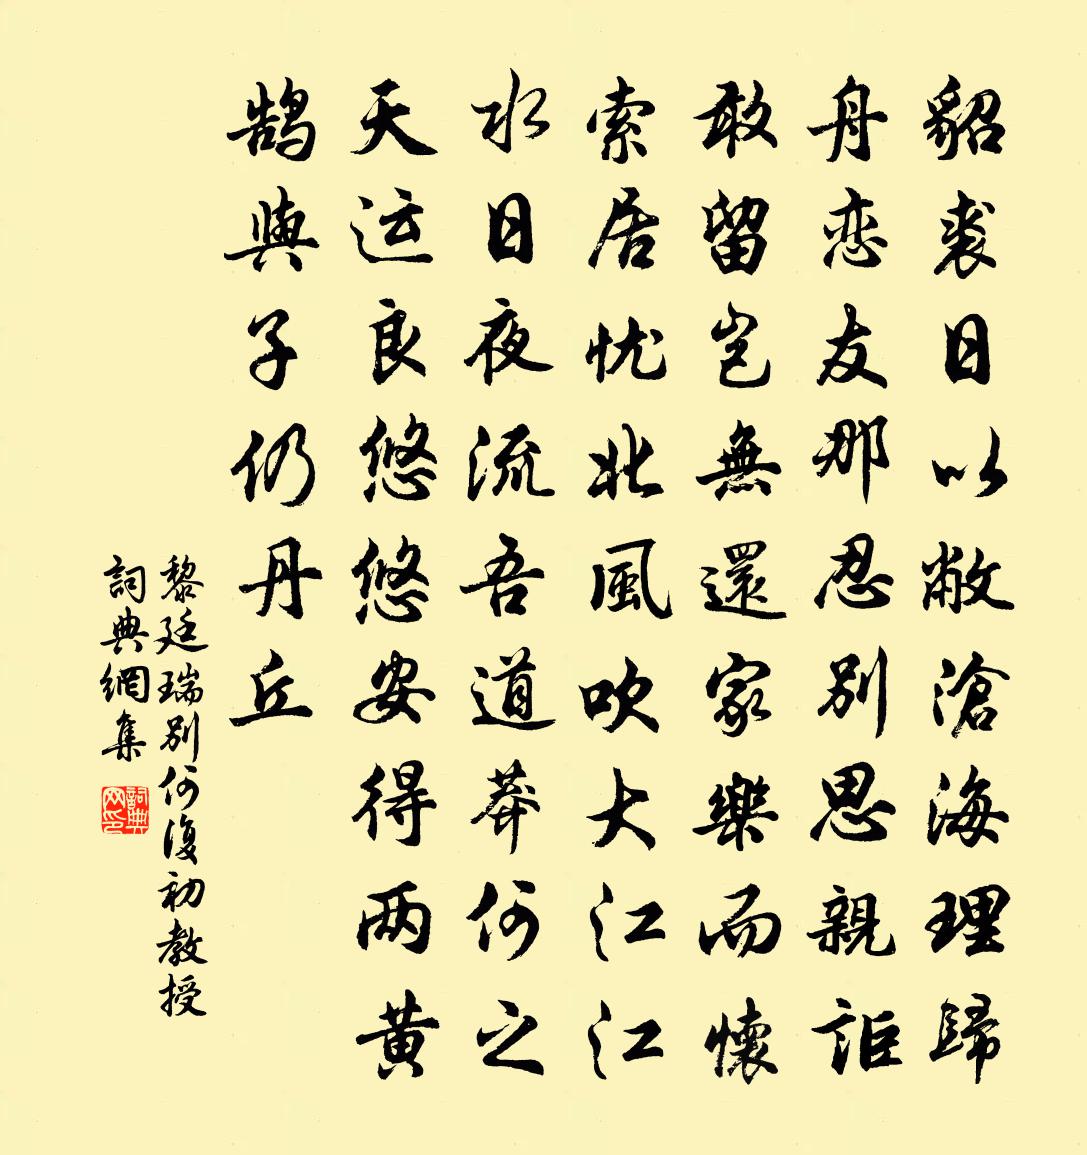 貂裘日以敝滄海理歸
舟恋友那忍別思親詎
敢留岂無還家樂而懷
索居忧北風吹大江江
水日夜流吾道莽何之
天运良悠悠安得两黄
鹄與子仍丹丘
黎廷瑞別何復初教授
詞典網集
詞典
网印